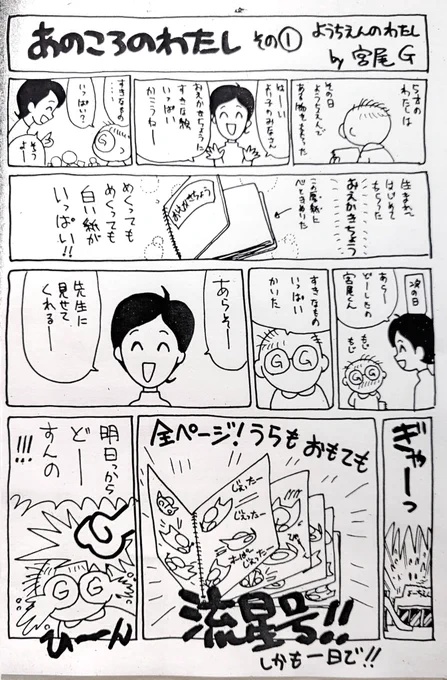 あのころのわたし その①
ようちえんのわたし
by 宮尾G
5才の
わたしは
その日
ようちえんで
ある物をもらった
はーい
よい子のみなさん
おえかきちょうに
すきな絵
いっぱい
かこうねー
すきなもの
いっぱい?
そうよー
生まれて
はじめて
もらった
おえかきちょう
この厚紙に
おえかきちょう
めくっても
めくっても
白い紙が
いっぱい!!
次の日
あらー
どーしたの
宮尾くん
もじ
もじ
すきなもの
いっぱい
かいた
G G
あらそー
先生に
見せて
くれるー
ぎゃーっ
全ページ!うらもおもても
じぇったー
じぇったー
すーぱー
じぇったー
流星号!!
しかも一日で!!
明日っから
どー
すんの
!!!
G G
ひーん